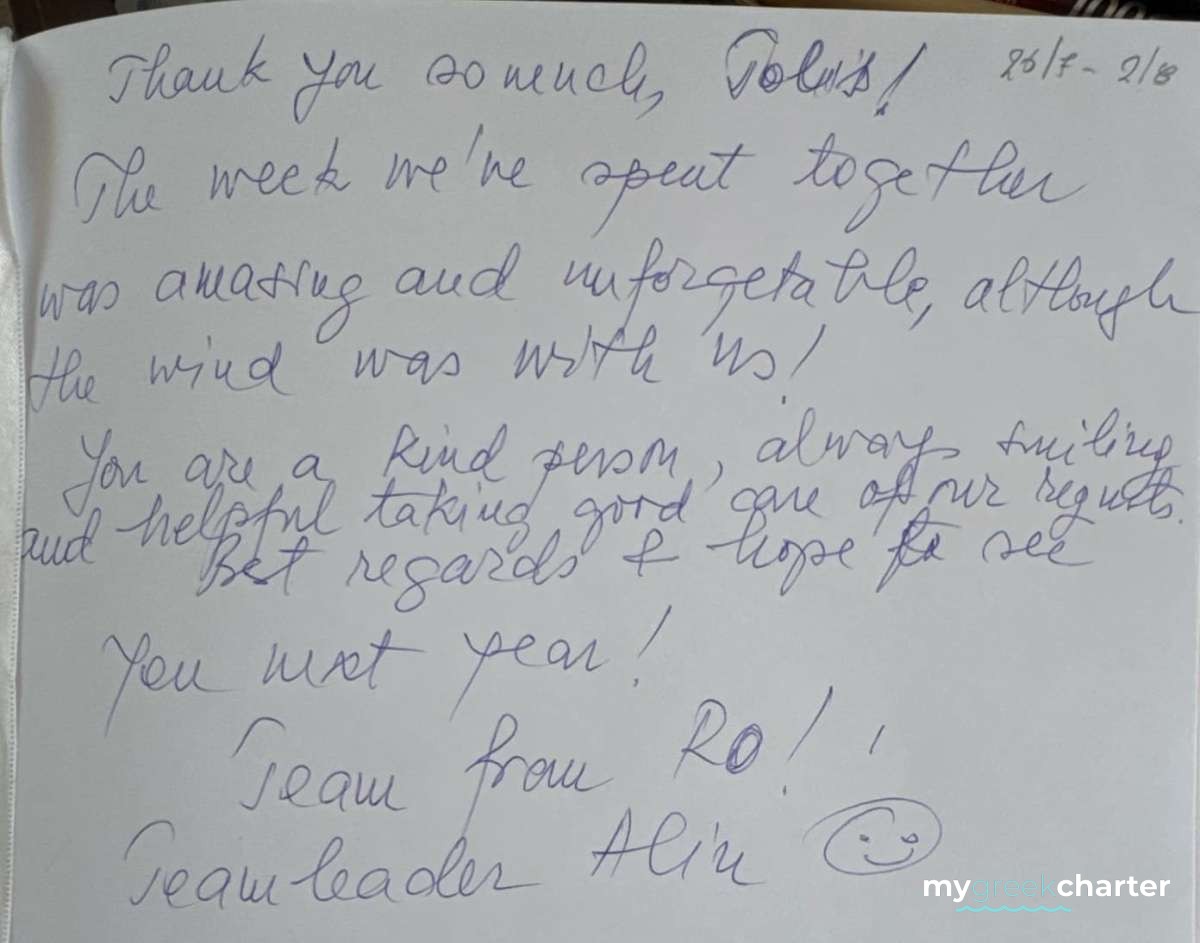 Thank you so much, Tolis! 26/7 - 2/8
The week we've spent together
was amazing and unforgetable, although
the wind was with us!
You are a kind person, always smiling
and helpful taking good care of our requests.
Best regards & hope to see
you next year!
Team from RO!
Teamleader Alin
mygreekcharter